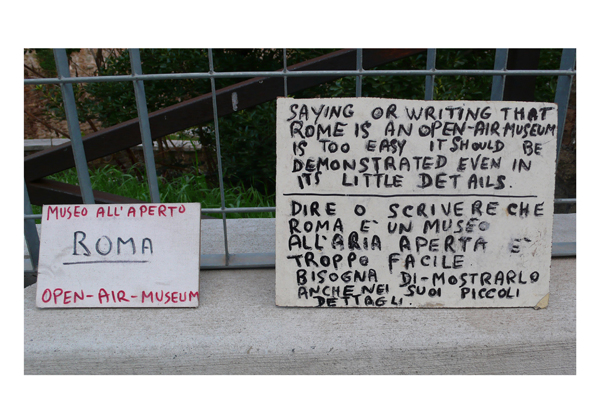 MUSEO ALL'APERTO
ROMA
OPEN-AIR-MUSEUM
SAYING OR WRITING THAT
ROME IS AN OPEN-AIR MUSEUM
IS TOO EASY IT SHOULD BE
DEMONSTRATED EVEN IN
ITS LITTLE DETAILS.
DIRE O SCRIVERE CHE
ROMA E' UN MUSEO
ALL'ARIA APERTA E'
TROPPO FACILE
BISOGNA DI-MOSTRARLO
ANCHE NEI SUOI PICCOLI
DETTAGLI.